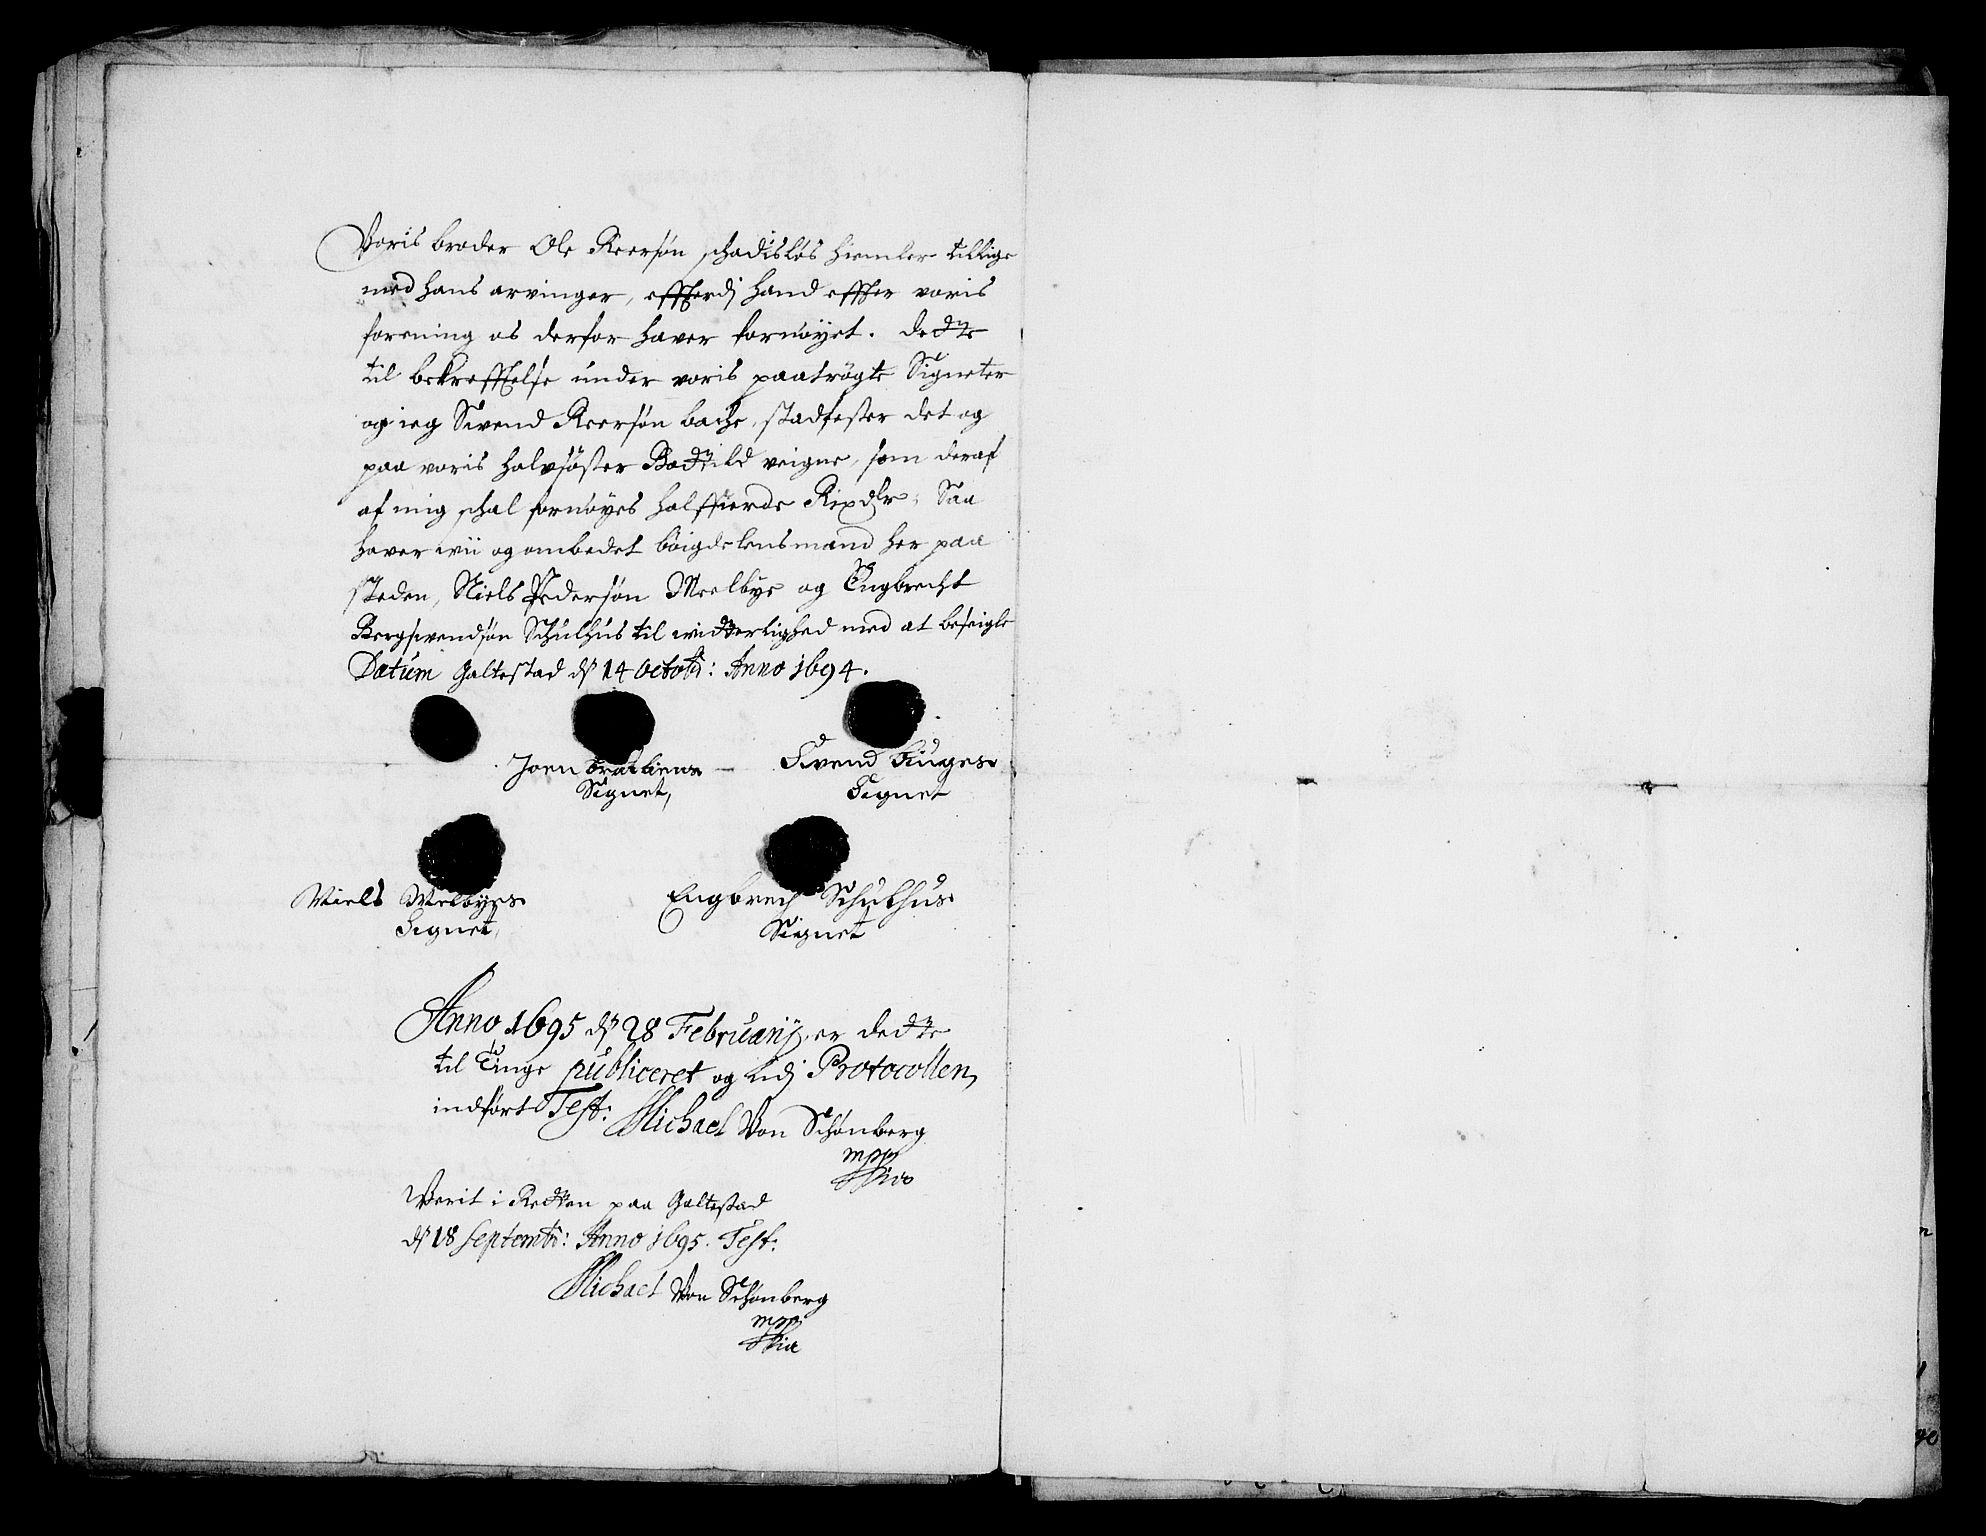 Voris broder Ole Reersøn schadisløs hiemler tillige
med hans arvinger, effterdj hand effter voris
forening os derfor haver fornøyet. dette
til bekrefftelse under voris paatrögte Signeter
og ieg Svend Reersøn bache, stadfester det og
paa voris halvsøster Bodtild veigne, som deraf
af mig schal fornøyes halffierde Rixdlr, Saa
haver wii og ombedet böigdelensmand her paa
steden, Niels Pedersøn Meelbye og Engbrecht
Bergsvendsøn Schulhus til witterlighed med at beseigle
Datum Galtestad dj 14 octobr: Anno 1694.
Joen
Svend
Signet, Signet
Niels Melbyes Engbrech Schulhus
Signet, Signet
Anno 1695 dj 28 Februarij, er dette
til Tinge publiceret og udj Protocollen
indført Test: Michael Von Schønberg
mpp
Verit i Retten paa Galtestad
dj 18 septembr: Anno 1695. Test:
Michael Von Schønberg
mpp